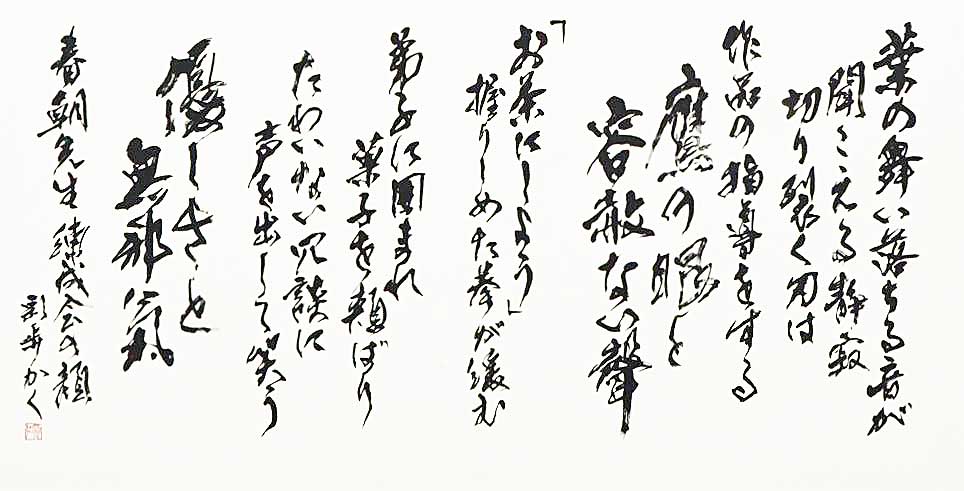 葉の舞い落ちる音が
聞こえる静寂
切り裂く刃は
作品の指導をする
鷹の眼と
容赦ない聲
「お茶にしよう」
握りしめた拳が緩む
弟子に囲まれ
菓子を頬ばり
たわい無い冗談に
声を出して笑う
優しさと
無邪氣
春朝先生 練成会の顔
かく